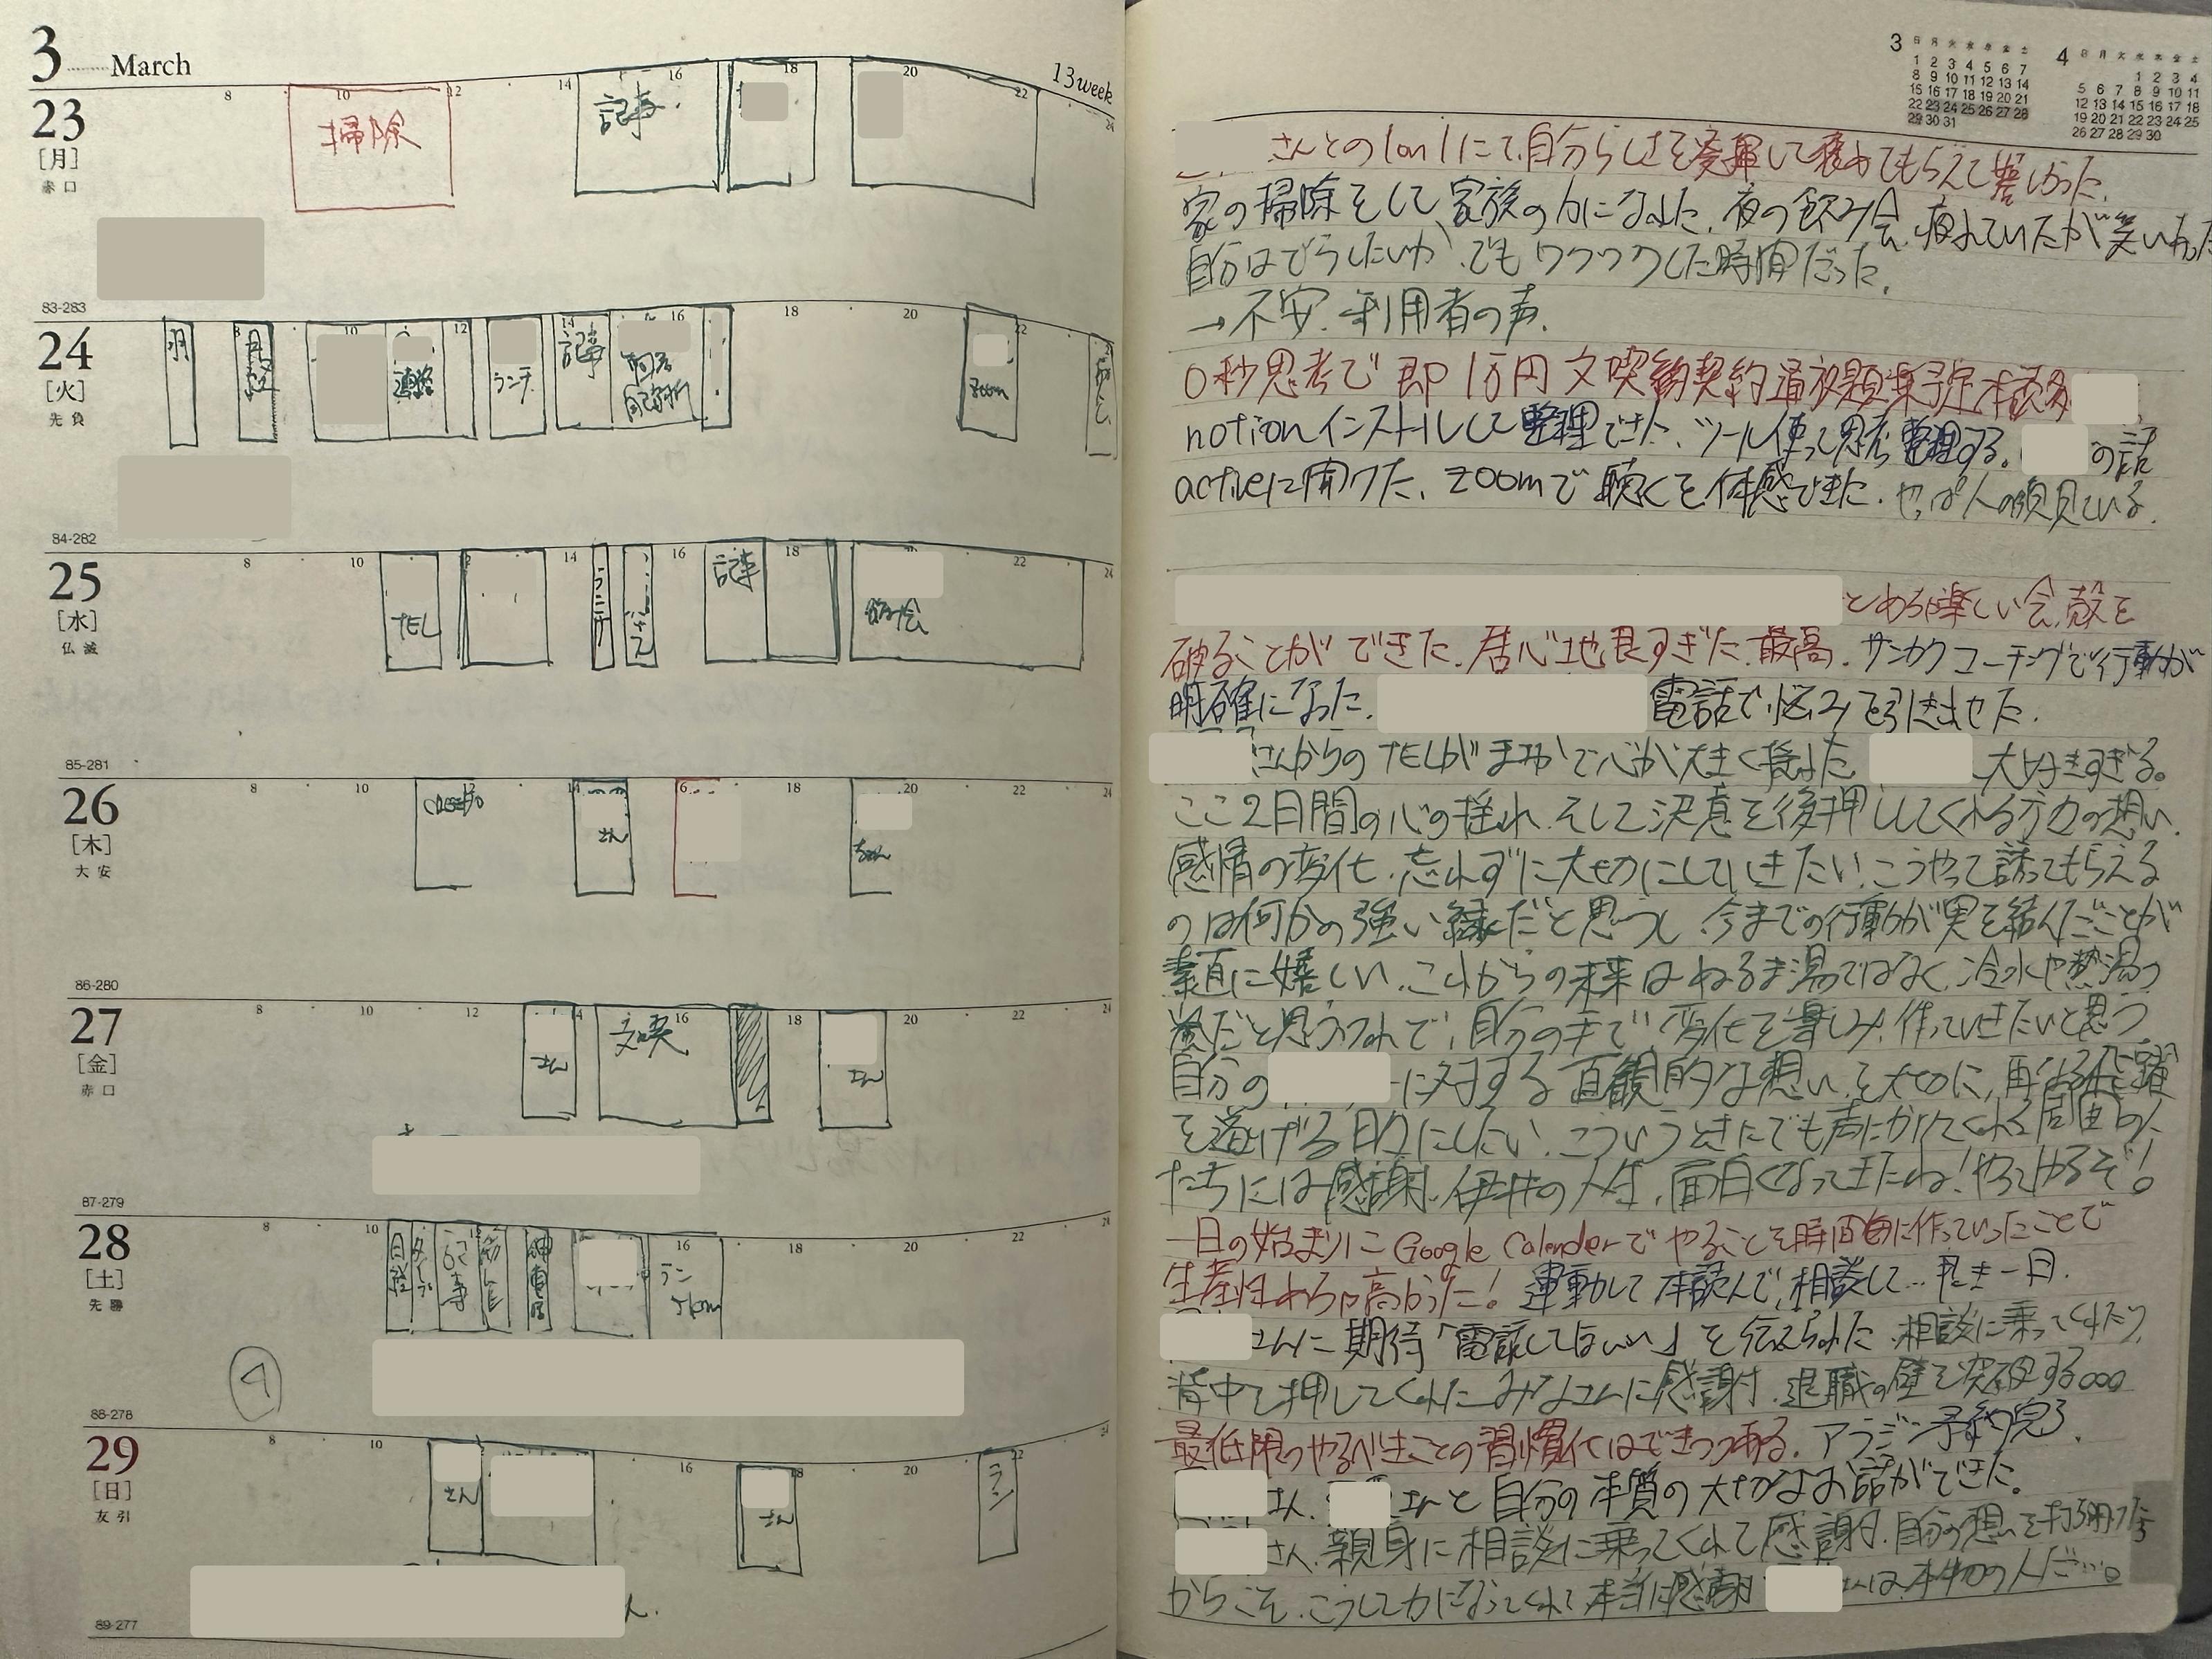 3 March
13week
23
[月]
赤口
8 10 12 14 16 18 20 22 24
掃除
記事
83-283
24
[火]
先負
8 10 12 14 16 18 20 22
連絡
ランチ
記事
自己分析
zoom
84-282
25
[水]
仏滅
8 10 12 14 16 18 20 22 24
TEL
ランニング
記事
飲み会
85-281
26
[木]
大安
8 10 12 14 16 18 20 22 24
さん
ちゃん
86-280
27
[金]
赤口
8 10 12 14 16 18 20 22 24
さん
文喫
さん
87-279
28
[土]
先勝
8 10 12 16 18 20 22 24
日経
記事
筋トレ
ラン
5km
88-278
29
[日]
友引
8 10 16 18 20 22 24
さん
さん
ラン
89-277
3 日 月 火 水 木 金 土
1 2 3 4 5 6 7
8 9 10 11 12 13 14
15 16 17 18 19 20 21
22 23 24 25 26 27 28
29 30 31
4 日 月 火 水 木 金 土
1 2 3 4
5 6 7 8 9 10 11
12 13 14 15 16 17 18
19 20 21 22 23 24 25
26 27 28 29 30
さんとの1on1にて、自分らしさを発揮して褒めてもらえて嬉しかった。
家の掃除をして家族の力になれた。夜の飲み会、疲れていたが笑いあった
自分はどうしたいか、でもワクワクした時間だった。
→不安、利用者の声。
0秒思考で即1万円文喫契約
notionインストールして整理できた、ツール使って思考整理する。の話
activeに聞けた、zoomで聴くを体感できた。やっぱ人の顔見ている。
とめちゃ楽しい会、殻を
破ることができた。居心地良すぎた、最高。サンカクコーチングで行動が
明確になった。電話で悩みを引き出せた。
さんからのTELがまさかで心が大きく揺れた 大好きすぎる。
ここ2日間の心の揺れ、そして決意を後押ししてくれる方々の想い、
感情の変化、忘れずに大切にしていきたい。こうやって誘ってもらえる
のは何かの強い縁だと思うし、今までの行動が実を結んだことが
素直に嬉しい。これからの未来はぬるま湯ではなく、冷水や熱湯の
だと思うので、自分の手で、変化を楽しみ、作っていきたいと思う。
自分のに対する直観的な想いを大切に、再び飛躍
を遂げる日々にしたい。こういうときにでも声にかけてくれる周囲の人
たちには感謝。伊井の人生、面白くなってきたね！やってやるぞ！
一日の始まりにGoogle Calenderでやることを時間毎に作っていったことで
生産性めちゃ高かった！運動して本読んで、相談して…良き一日。
さんに期待「電話してほしい」を伝えられた。相談に乗ってくれたり、
背中を押してくれたみなさんに感謝。退職の壁を突破する。。。
最低限のやるべきことの習慣化はできつつある。アラジン予約完了。
さん、さんと自分の本質の大切なお話ができた。
さん、親身に相談に乗ってくれて感謝。自分の想いを打ち明けた
からこそ、こうして力になってくれて本当に感謝 さんは本物の人だ…。